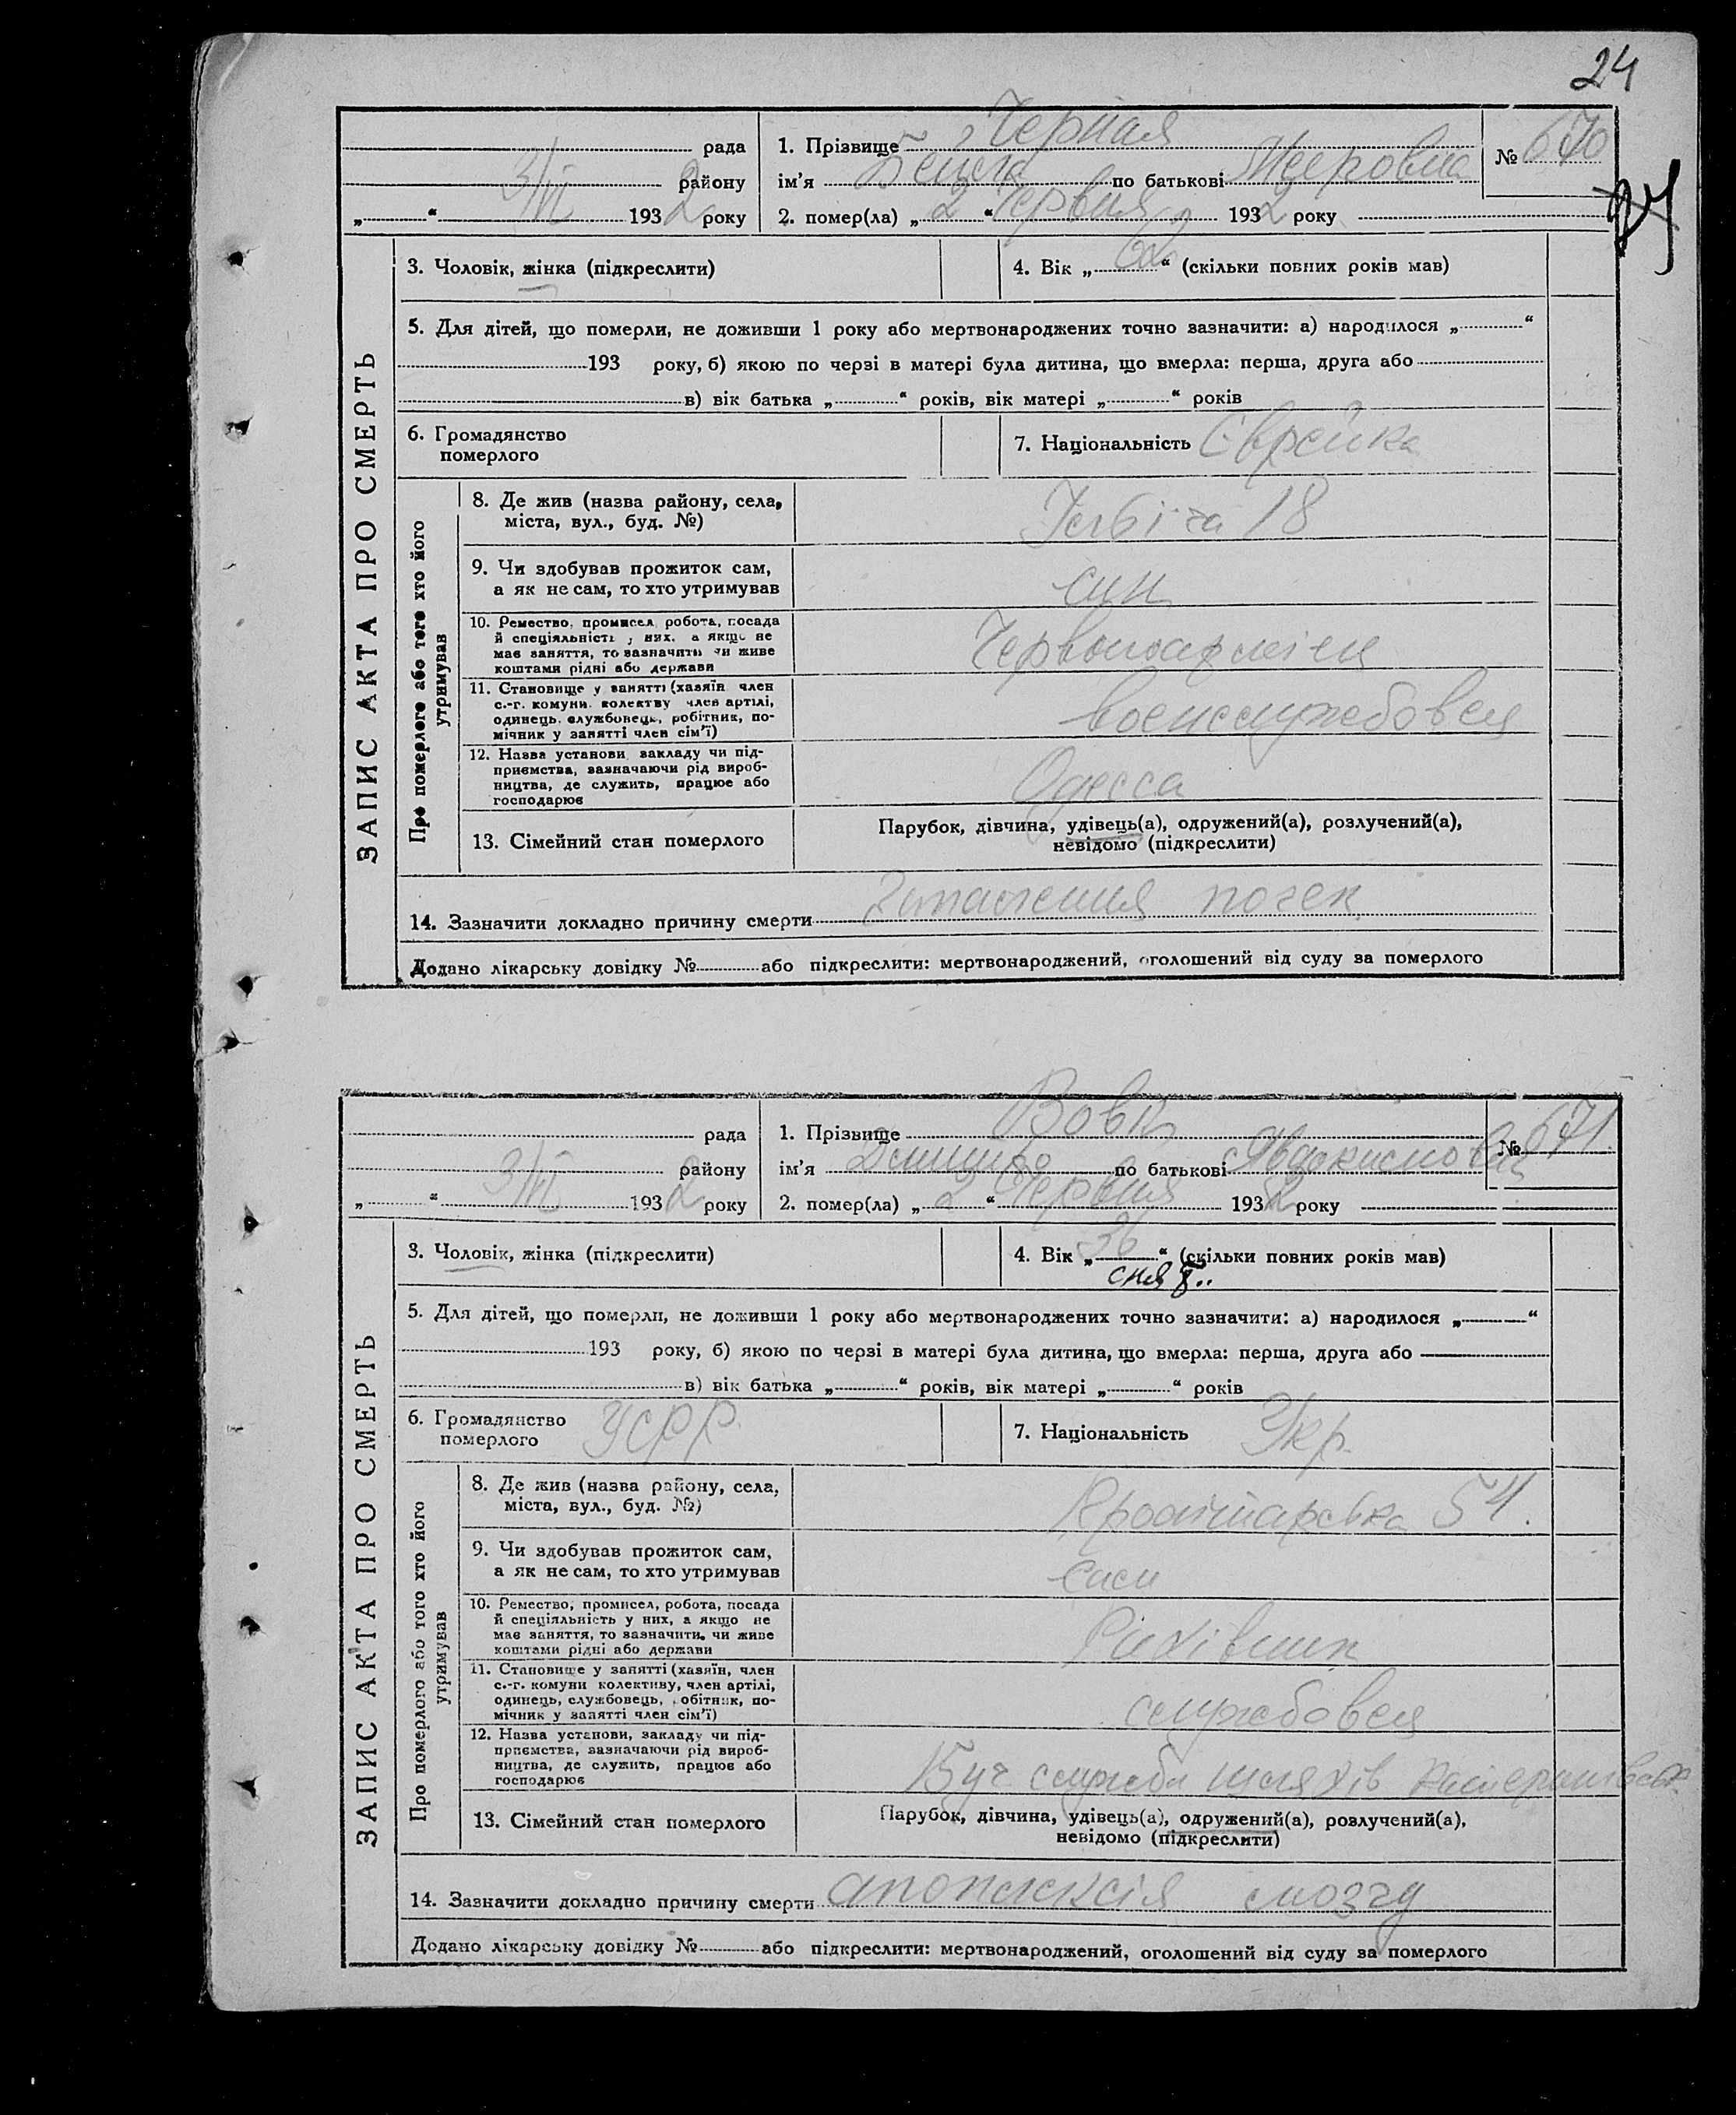 24
рада
району
3/VI 1932 року
1. Прізвище Черная
ім'я Бейла по батькові Меєровна
2. помер(ла) „2“ Червня 1932 року
№ 670
24
ЗАПИС АКТА ПРО СМЕРТЬ
3. Чоловік, жінка (підкреслити)
4. Вік „62“ (скільки повних років мав)
5. Для дітей, що померли, не доживши 1 року або мертвонароджених точно зазначити: а) народилося „ “
193 року, б) якою по черзі в матері була дитина, що вмерла: перша, друга або
в) вік батька „ “ років, вік матері „ “ років
6. Громадянство
померлого
7. Національність Єврейка
Про померлого або того хто його
утримував
8. Де жив (назва району, села,
міста, вул., буд. №)
18
9. Чи здобував прожиток сам,
а як не сам, то хто утримував
син
10. Ремество, промисел, робота, посада
й спеціяльність у них, а якщо не
має заняття, то зазначити чи живе
коштами рідні або держави
Червоноармієць
11. Становище у занятті (хазяїн член
с.-г. комуни, колектву член артілі,
одинець, службовець, робітник, по-
мічник у занятті член сім'ї)
военслужбовець
12. Назва установи, закладу чи під-
приємства, зазначаючи рід вироб-
ництва, де служить, працює або
господарює
Одесса
13. Сімейний стан померлого
Парубок, дівчина, удівець(а), одружений(а), розлучений(а),
невідомо (підкреслити)
14. Зазначити докладно причину смерти почек
Додано лікарську довідку № або підкреслити: мертвонароджений, оголошений від суду за померлого
рада
району
3/VI 1932 року
1. Прізвище Вовк
ім'я Данило по батькові
2. помер(ла) „2“ Червня 1932 року
№ 671
ЗАПИС АКТА ПРО СМЕРТЬ
3. Чоловік, жінка (підкреслити)
4. Вік „36“ (скільки повних років мав)
5. Для дітей, що померли, не доживши 1 року або мертвонароджених точно зазначити: а) народилося „ “
193 року, б) якою по черзі в матері була дитина, що вмерла: перша, друга або
в) вік батька „ “ років, вік матері „ “ років
6. Громадянство
померлого
УСРР.
7. Національність Укр.
Про померлого або того хто його
утримував
8. Де жив (назва району, села,
міста, вул., буд. №)
54.
9. Чи здобував прожиток сам,
а як не сам, то хто утримував
сам
10. Ремество, промисел, робота, посада
й спеціяльність у них, а якщо не
має заняття, то зазначити, чи живе
коштами рідні або держави
Рахівник
11. Становище у занятті (хазяїн, член
с.-г. комуни колективу, член артілі,
одинець, службовець, робітник, по-
мічник у занятті член сім'ї)
службовець
12. Назва установи, закладу чи під-
приємства, зазначаючи рід вироб-
ництва, де служить, працює або
господарює
15 уч. служби шляхів
13. Сімейний стан померлого
Парубок, дівчина, удівець(а), одружений(а), розлучений(а),
невідомо (підкреслити)
14. Зазначити докладно причину смерти апоплексія мозгу
Додано лікарську довідку № або підкреслити: мертвонароджений, оголошений від суду за померлого